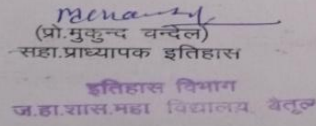 (प्रो.मुकुन्द चन्देल)
सहा.प्राध्यापक इतिहास
इतिहास विभाग
ज.हा.शास.महा विद्यालय बैतूल